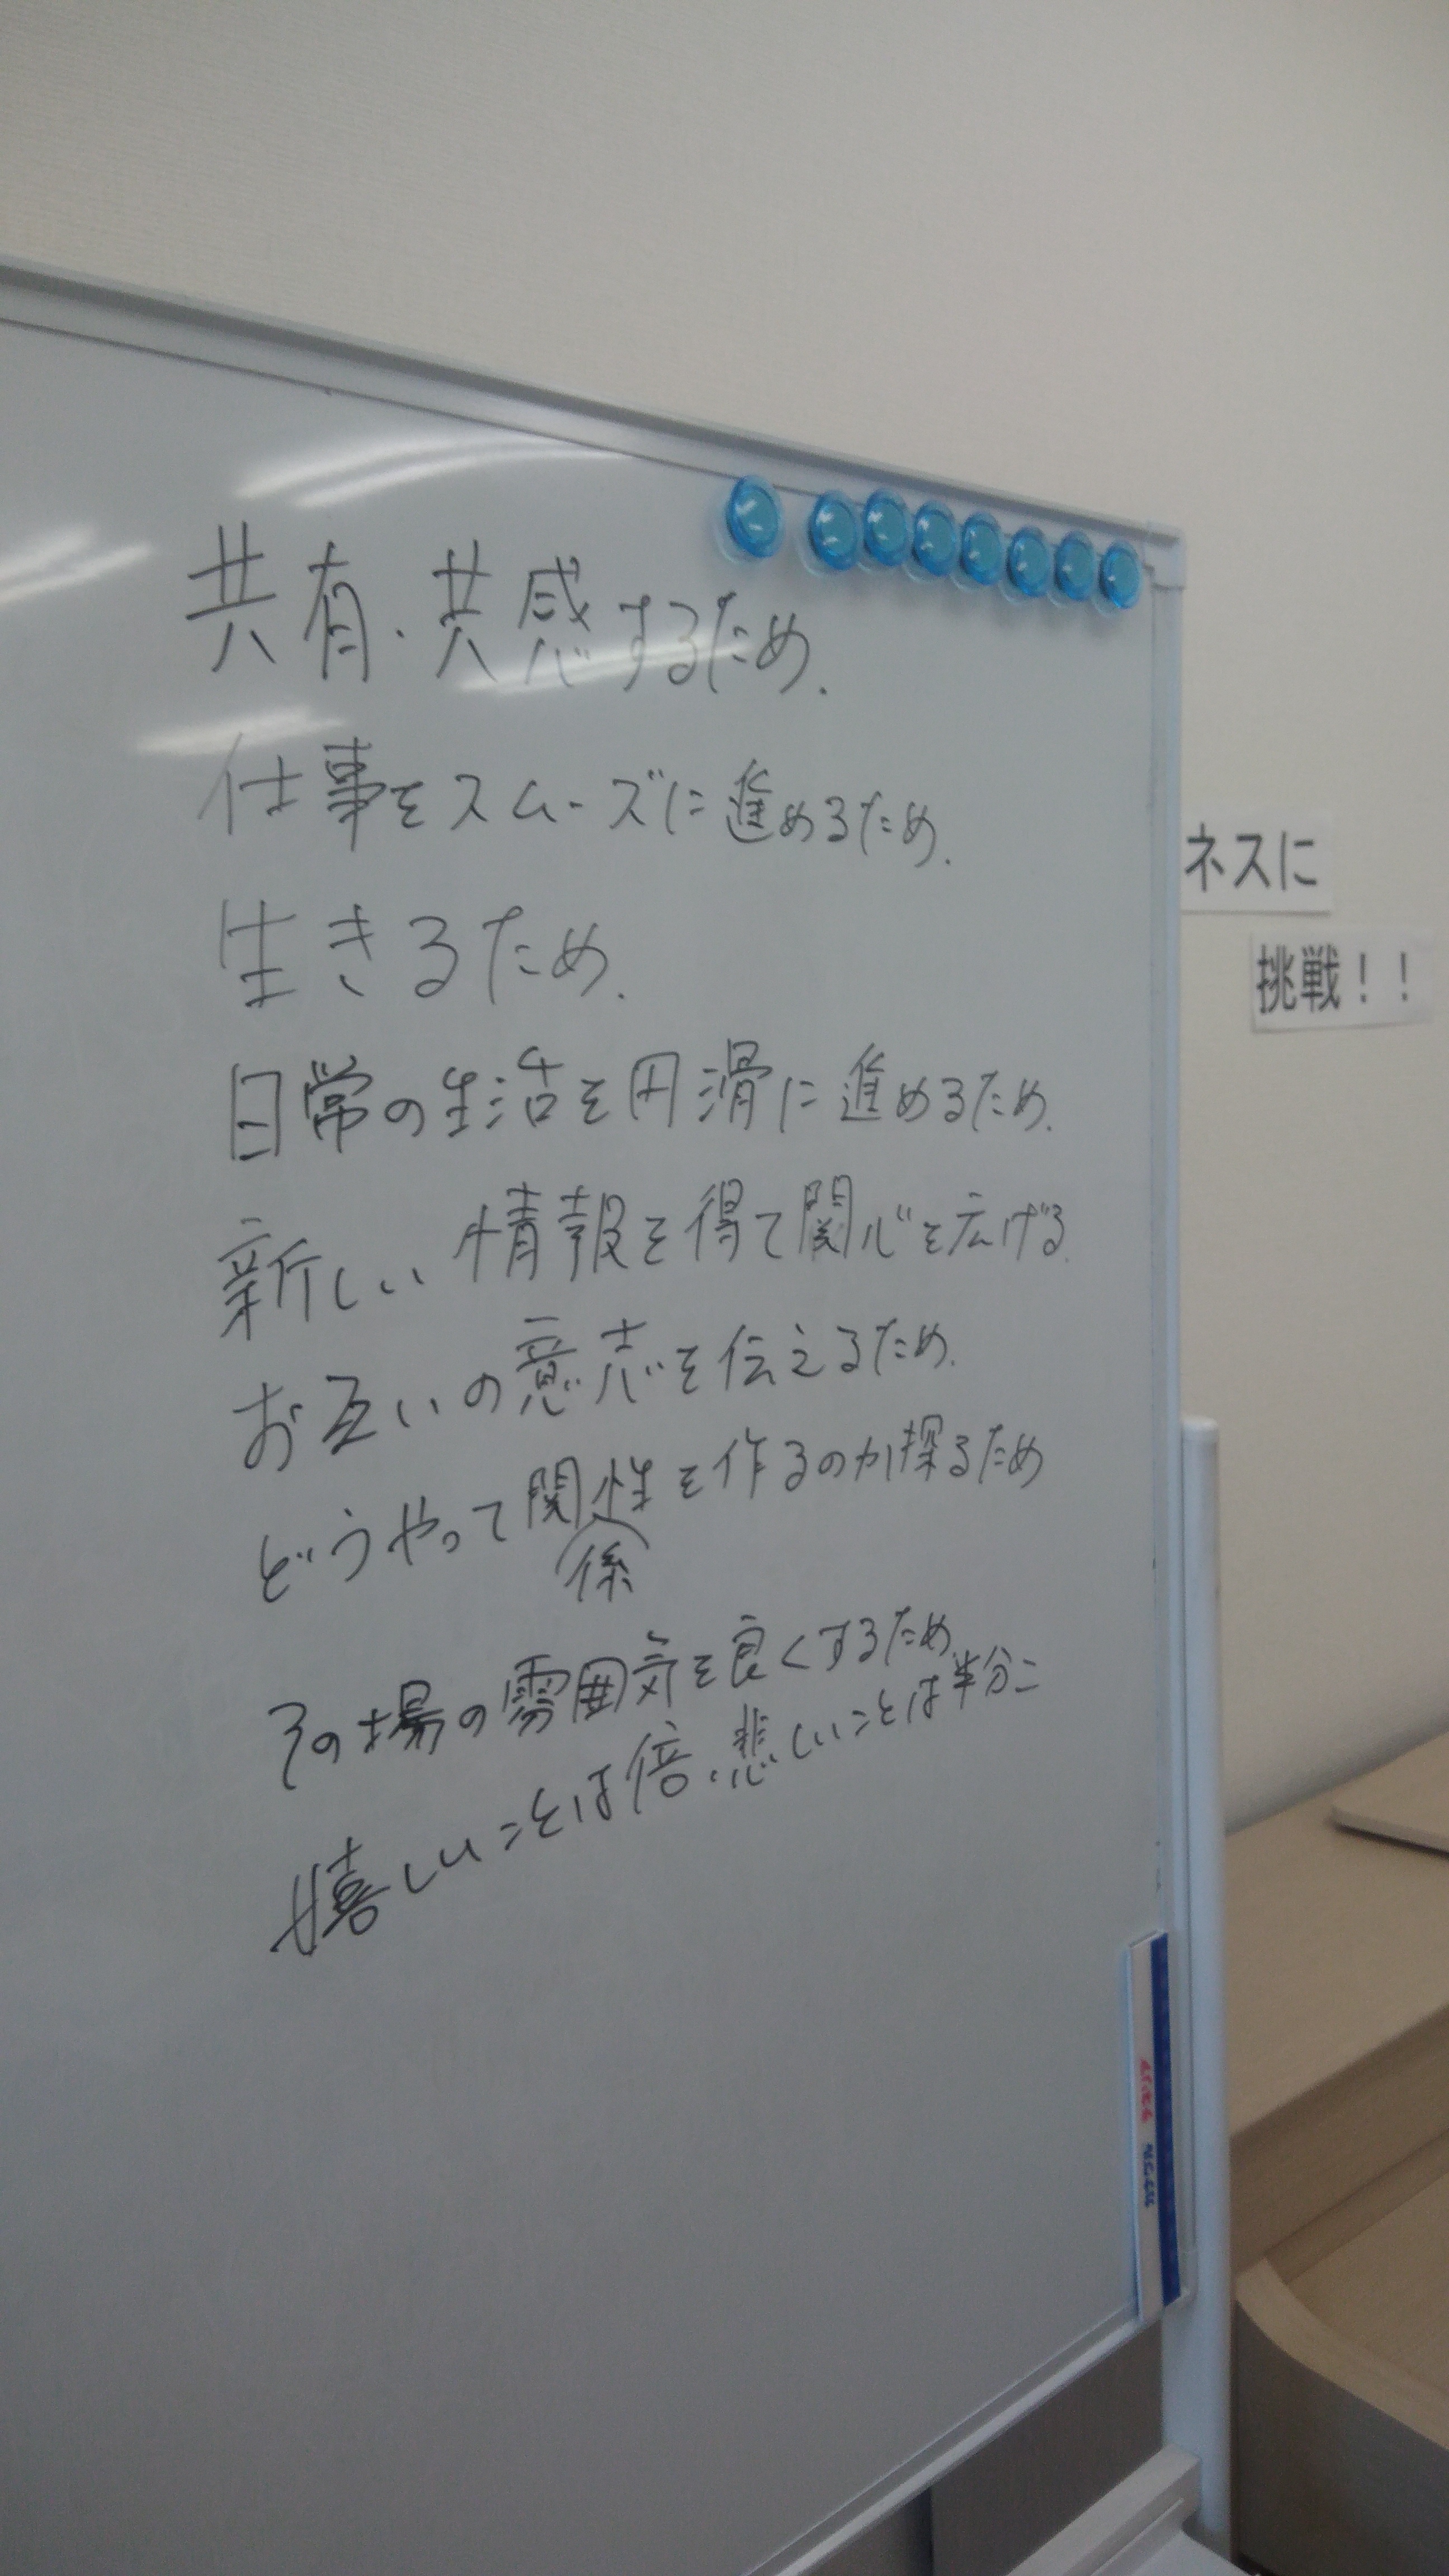 共有・共感するため.
仕事をスムーズに進めるため.
生きるため.
日常の生活を円滑に進めるため.
新しい情報を得て関心を広げる.
お互いの意志を伝えるため.
どうやって関性を作るのか探るため
係
その場の雰囲気を良くするため.
嬉しいことは倍、悲しいことは半分こ
ネスに
挑戦！！